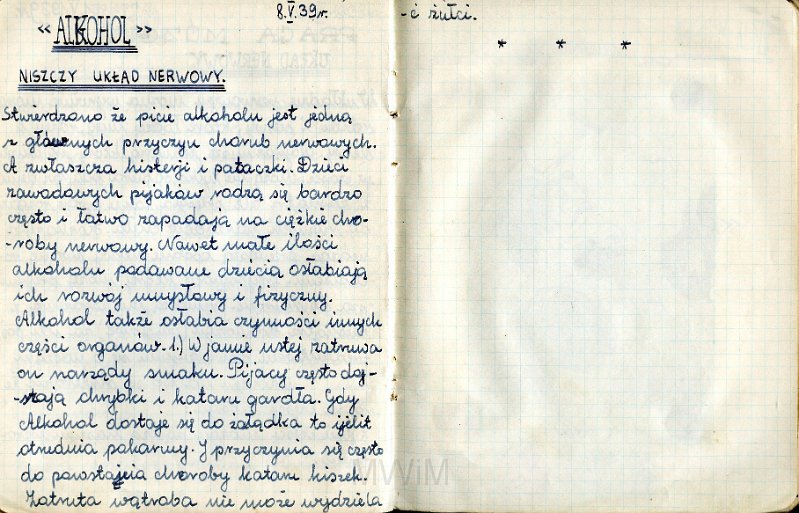 8.V.39r.
« ALKOHOL »
NISZCZY UKŁAD NERWOWY.
Stwierdzono że picie alkoholu jest jedną
z głównych przyczyn chorub nerwowych.
A zwłaszcza histerji i pataczki. Dzieci
zawadowych pijaków rodzą się bardzo
często i łatwo zapadają na ciężkie cho-
-roby nerwowy. Nawet małe ilości
alkoholu podawane dziecią osłabiają
ich rozwój umysłowy i fizyczny.
Alkohol także osłabia czynności innych
części organów. 1.) W jamie ustej zatruwa
on narządy smaku. Pijacy często doj-
-stają chrybki i kataru gardła. Gdy
Alkohol dostaje się do żołądka to ijelit
otrudnia pokarmy. I przyczynia się często
do powstajcia choroby kataru kiszek.
Zatruta wątroba nie może wydziela
-ć żułci.
* * *
MWiM